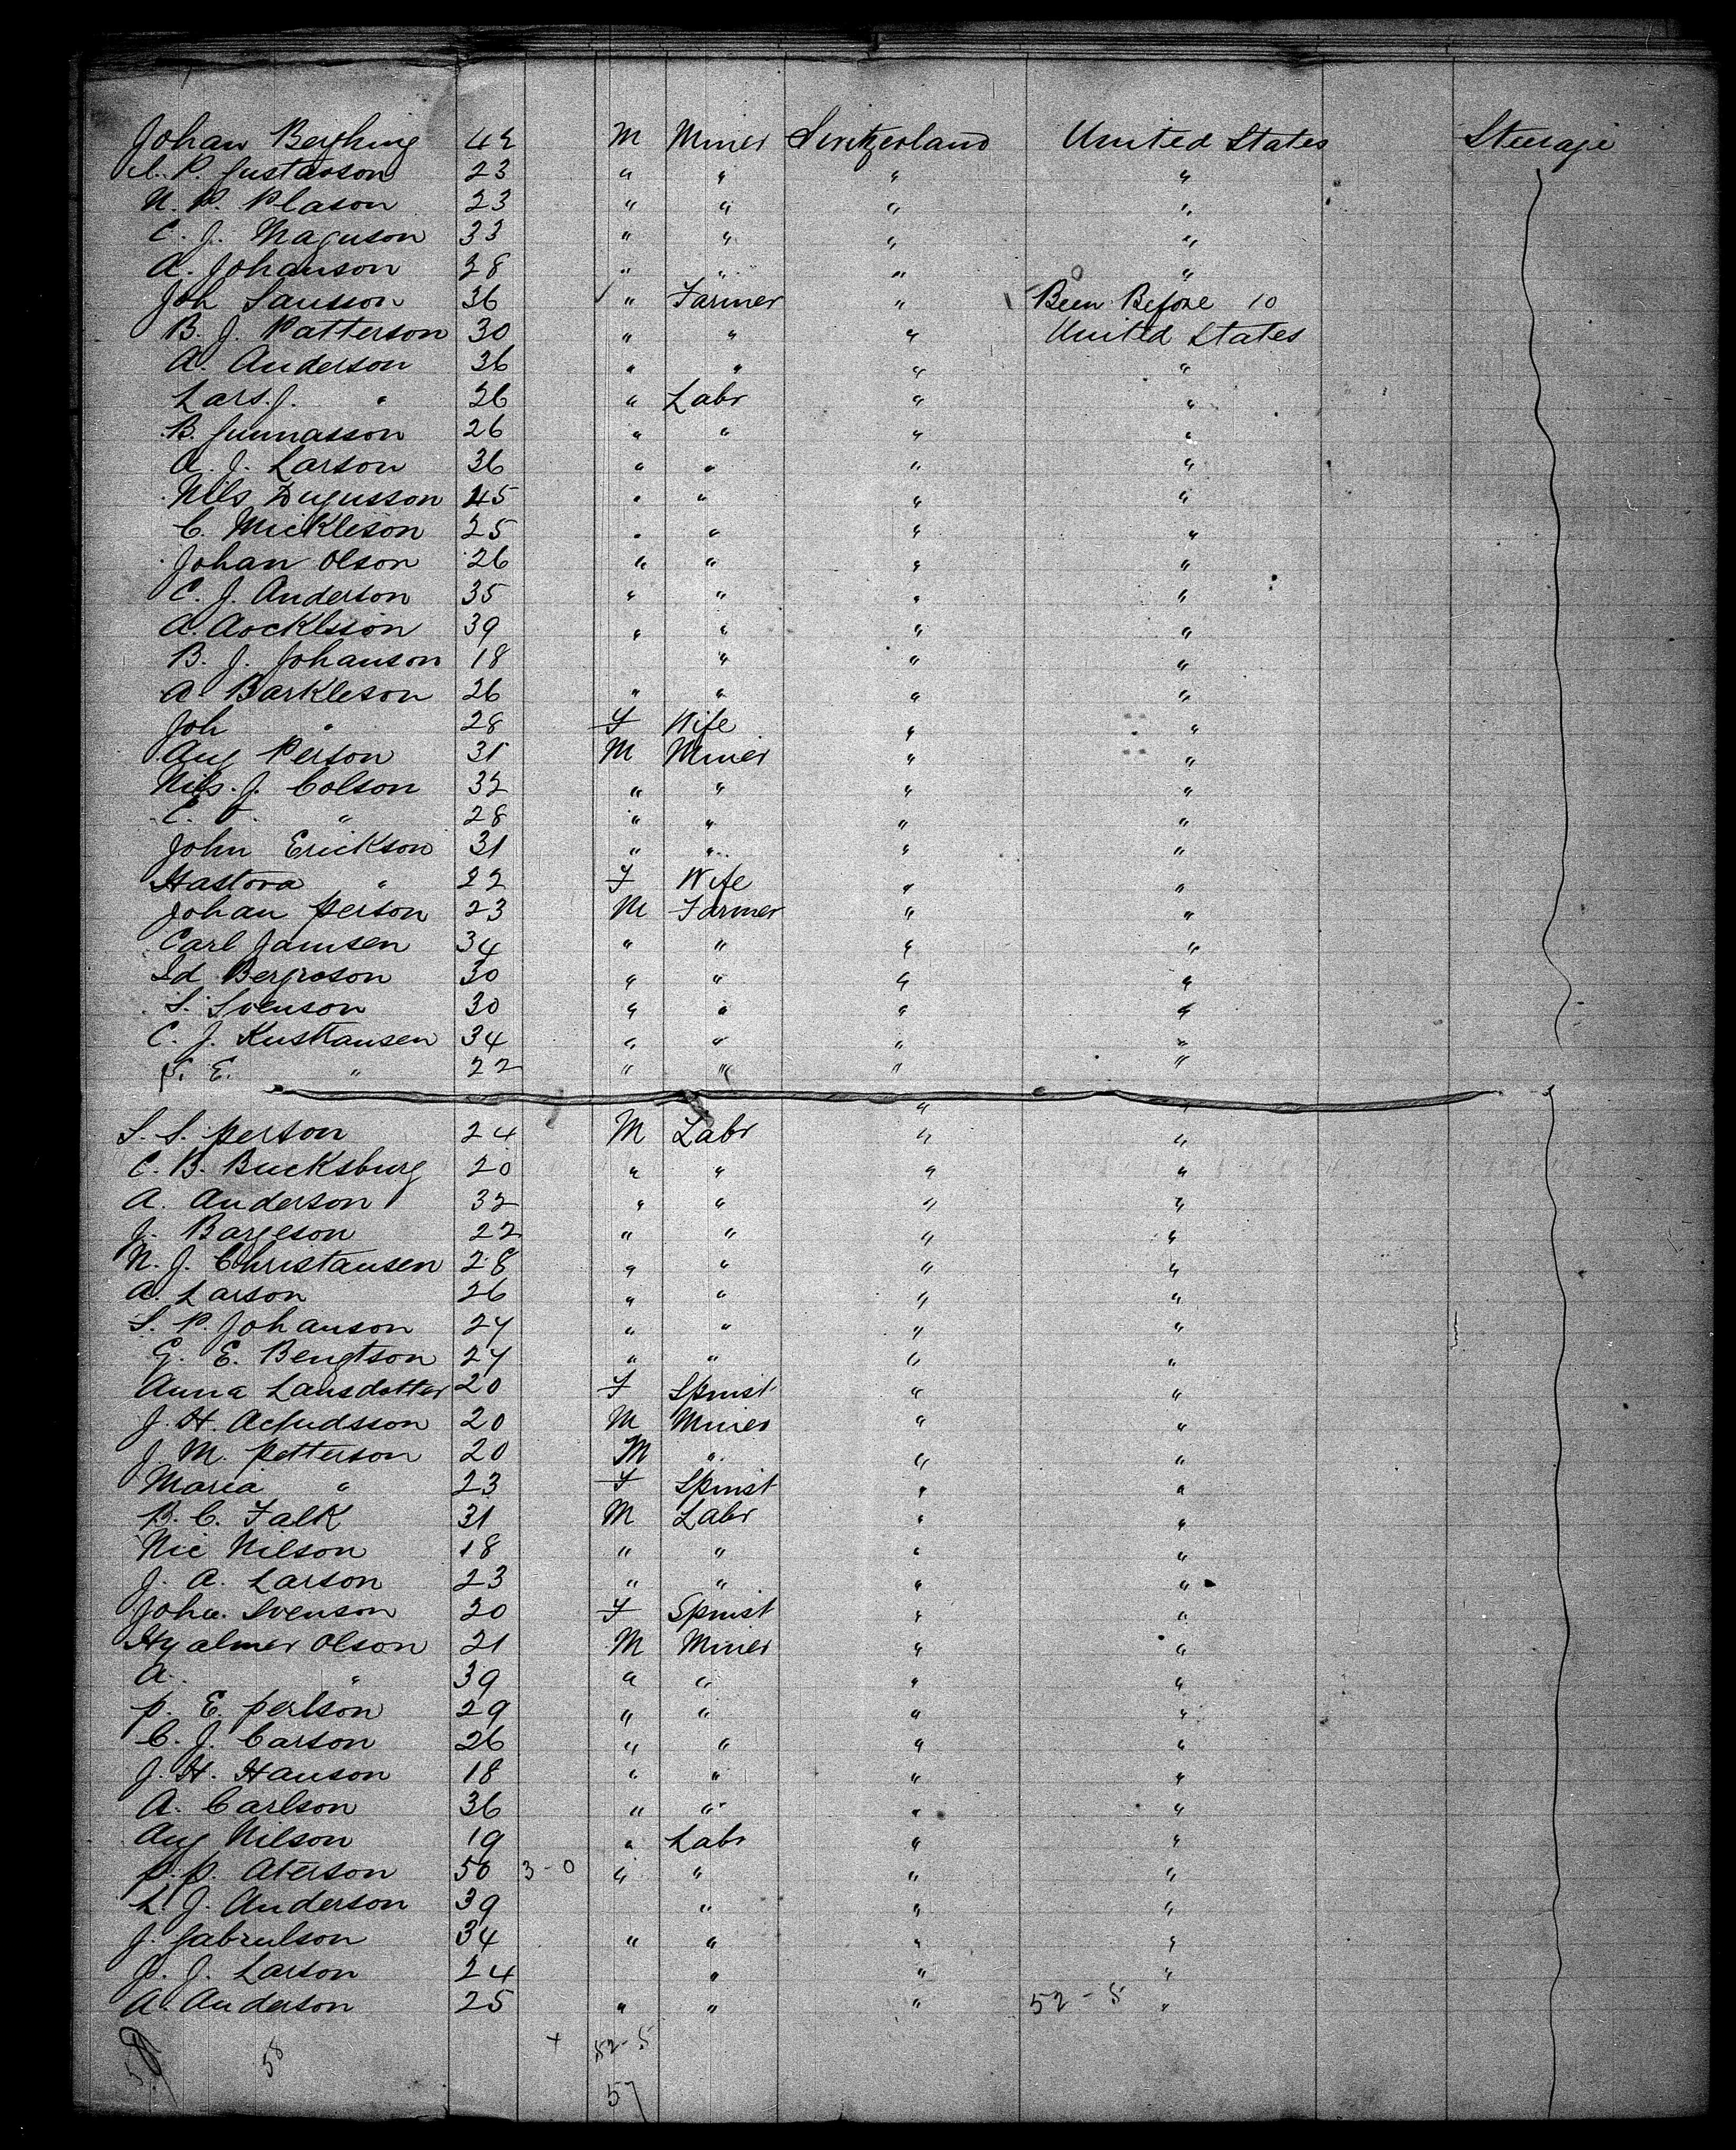 Johan Beyhing 42 M Miner Switzerland United States Steerage
P. Gustavson 23 " " " "
N. P. Plason 23 " " " "
C. J. Maguson 33 " " " "
A. Johanson 28 " " " "
Joh Sansson 36 " Farmer " Been Before 10
B. J. Patterson 30 " " " United States
A. Anderson 36 " " " "
Lars. J. " 26 " Labr " "
B. Gunnasson 26 " " " "
A. J. Larson 36 " " " "
Nils 45 " " " "
C. Mickleson 25 " " " "
Johan Olson 26 " " " "
C. J. Anderson 35 " " " "
A. Aocklsson 39 " " " "
B. J. Johanson 18 " " "
A Barkleson 26 " " " "
Joh " 28 F Wife " "
Aug Person 31 M Miner " "
Nils. J. Colson 32 " " " "
C. J. " 28 " " " "
John Erickson 31 " " " "
Hastora " 22 F Wife " "
Johan Person 23 M Farmer " "
Carl Jamsen 34 " " " "
Ed Bergroson 30 " " " "
S. Svenson 30 " " " "
C. J. Kusttansen 34 " " " "
E. " 22 " " " "
" "
S. S. Person 24 M Labr " "
C. B. Bucksburg 20 " " " "
A. Anderson 32 " " " "
J. Bargeson 22 " " " "
N. J. Christansen 28 " " " "
A. Larson 26 " " " "
S. P. Johanson 24 " " " "
G. E. Bengtson 24 " " " "
Anna Lansdotter 20 F Spinst " "
J. H. 20 M Miner " "
J. M. Petterson 20 M " " "
Maria " 23 F Spinst " "
B. C. Falk 31 M Labr " "
Nic Nilson 18 " " " "
J. A. Larson 23 " " " "
Joha. Svenson 20 F Spinst " "
Hyalmer Olson 21 M Miner " "
A. " 39 " " " "
P. E. Perlson 29 " " " "
C. J. Carson 26 " " " "
J. H. Hanson 18 " " " "
A. Carlson 36 " " " "
Aug Nilson 19 " Labr " "
P. P. Aterson 50 3-0 " " " "
L. J. Anderson 39 " " "
J. Gabrulson 34 " " " "
P. J. Larson 24 " " "
A. Anderson 25 " " " 52-5 "
58 + 52-5
57